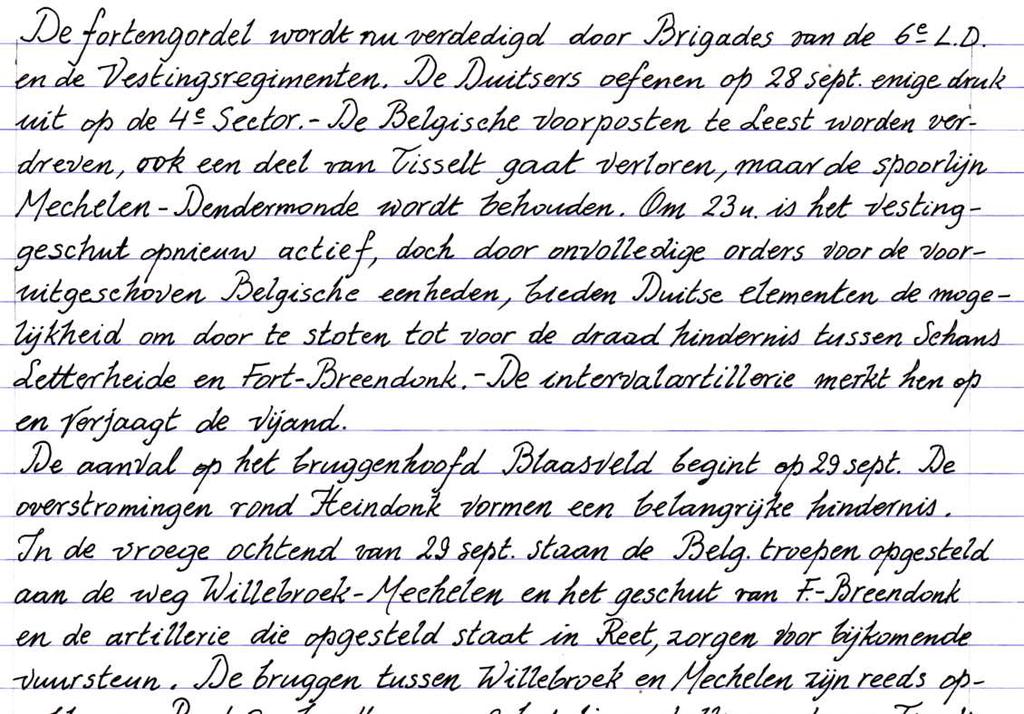 De fortengordel wordt nu verdedigd door Brigades van de 6e L.D.
en de Vestingsregimenten. De Duitsers oefenen op 28 sept. enige druk
uit op de 4e Sector.- De Belgische voorposten te Leest worden ver-
dreven, ook een deel van Tisselt gaat verloren, maar de spoorlijn
Mechelen-Dendermonde wordt behouden. Om 23 u. is het vesting-
geschut opnieuw actief, doch door onvolledige orders voor de voor-
uitgeschoven Belgische eenheden, bieden Duitse elementen de moge-
lijkheid om door te stoten tot voor de draad hindernis tussen Schans
Letterheide en Fort-Breendonk.-De intervalartillerie merkt hen op
en verjaagt de vijand.
De aanval op het bruggenhoofd Blaasveld begint op 29 sept. De
overstromingen rond Heindonk vormen een belangrijke hindernis.
In de vroege ochtend van 29 sept. staan de Belg. troepen opgesteld
aan de weg Willebroek-Mechelen en het geschut van F.-Breendonk
en de artillerie die opgesteld staat in Reet, zorgen voor bijkomende
vuursteun. De bruggen tussen Willebroek en Mechelen zijn reeds op-